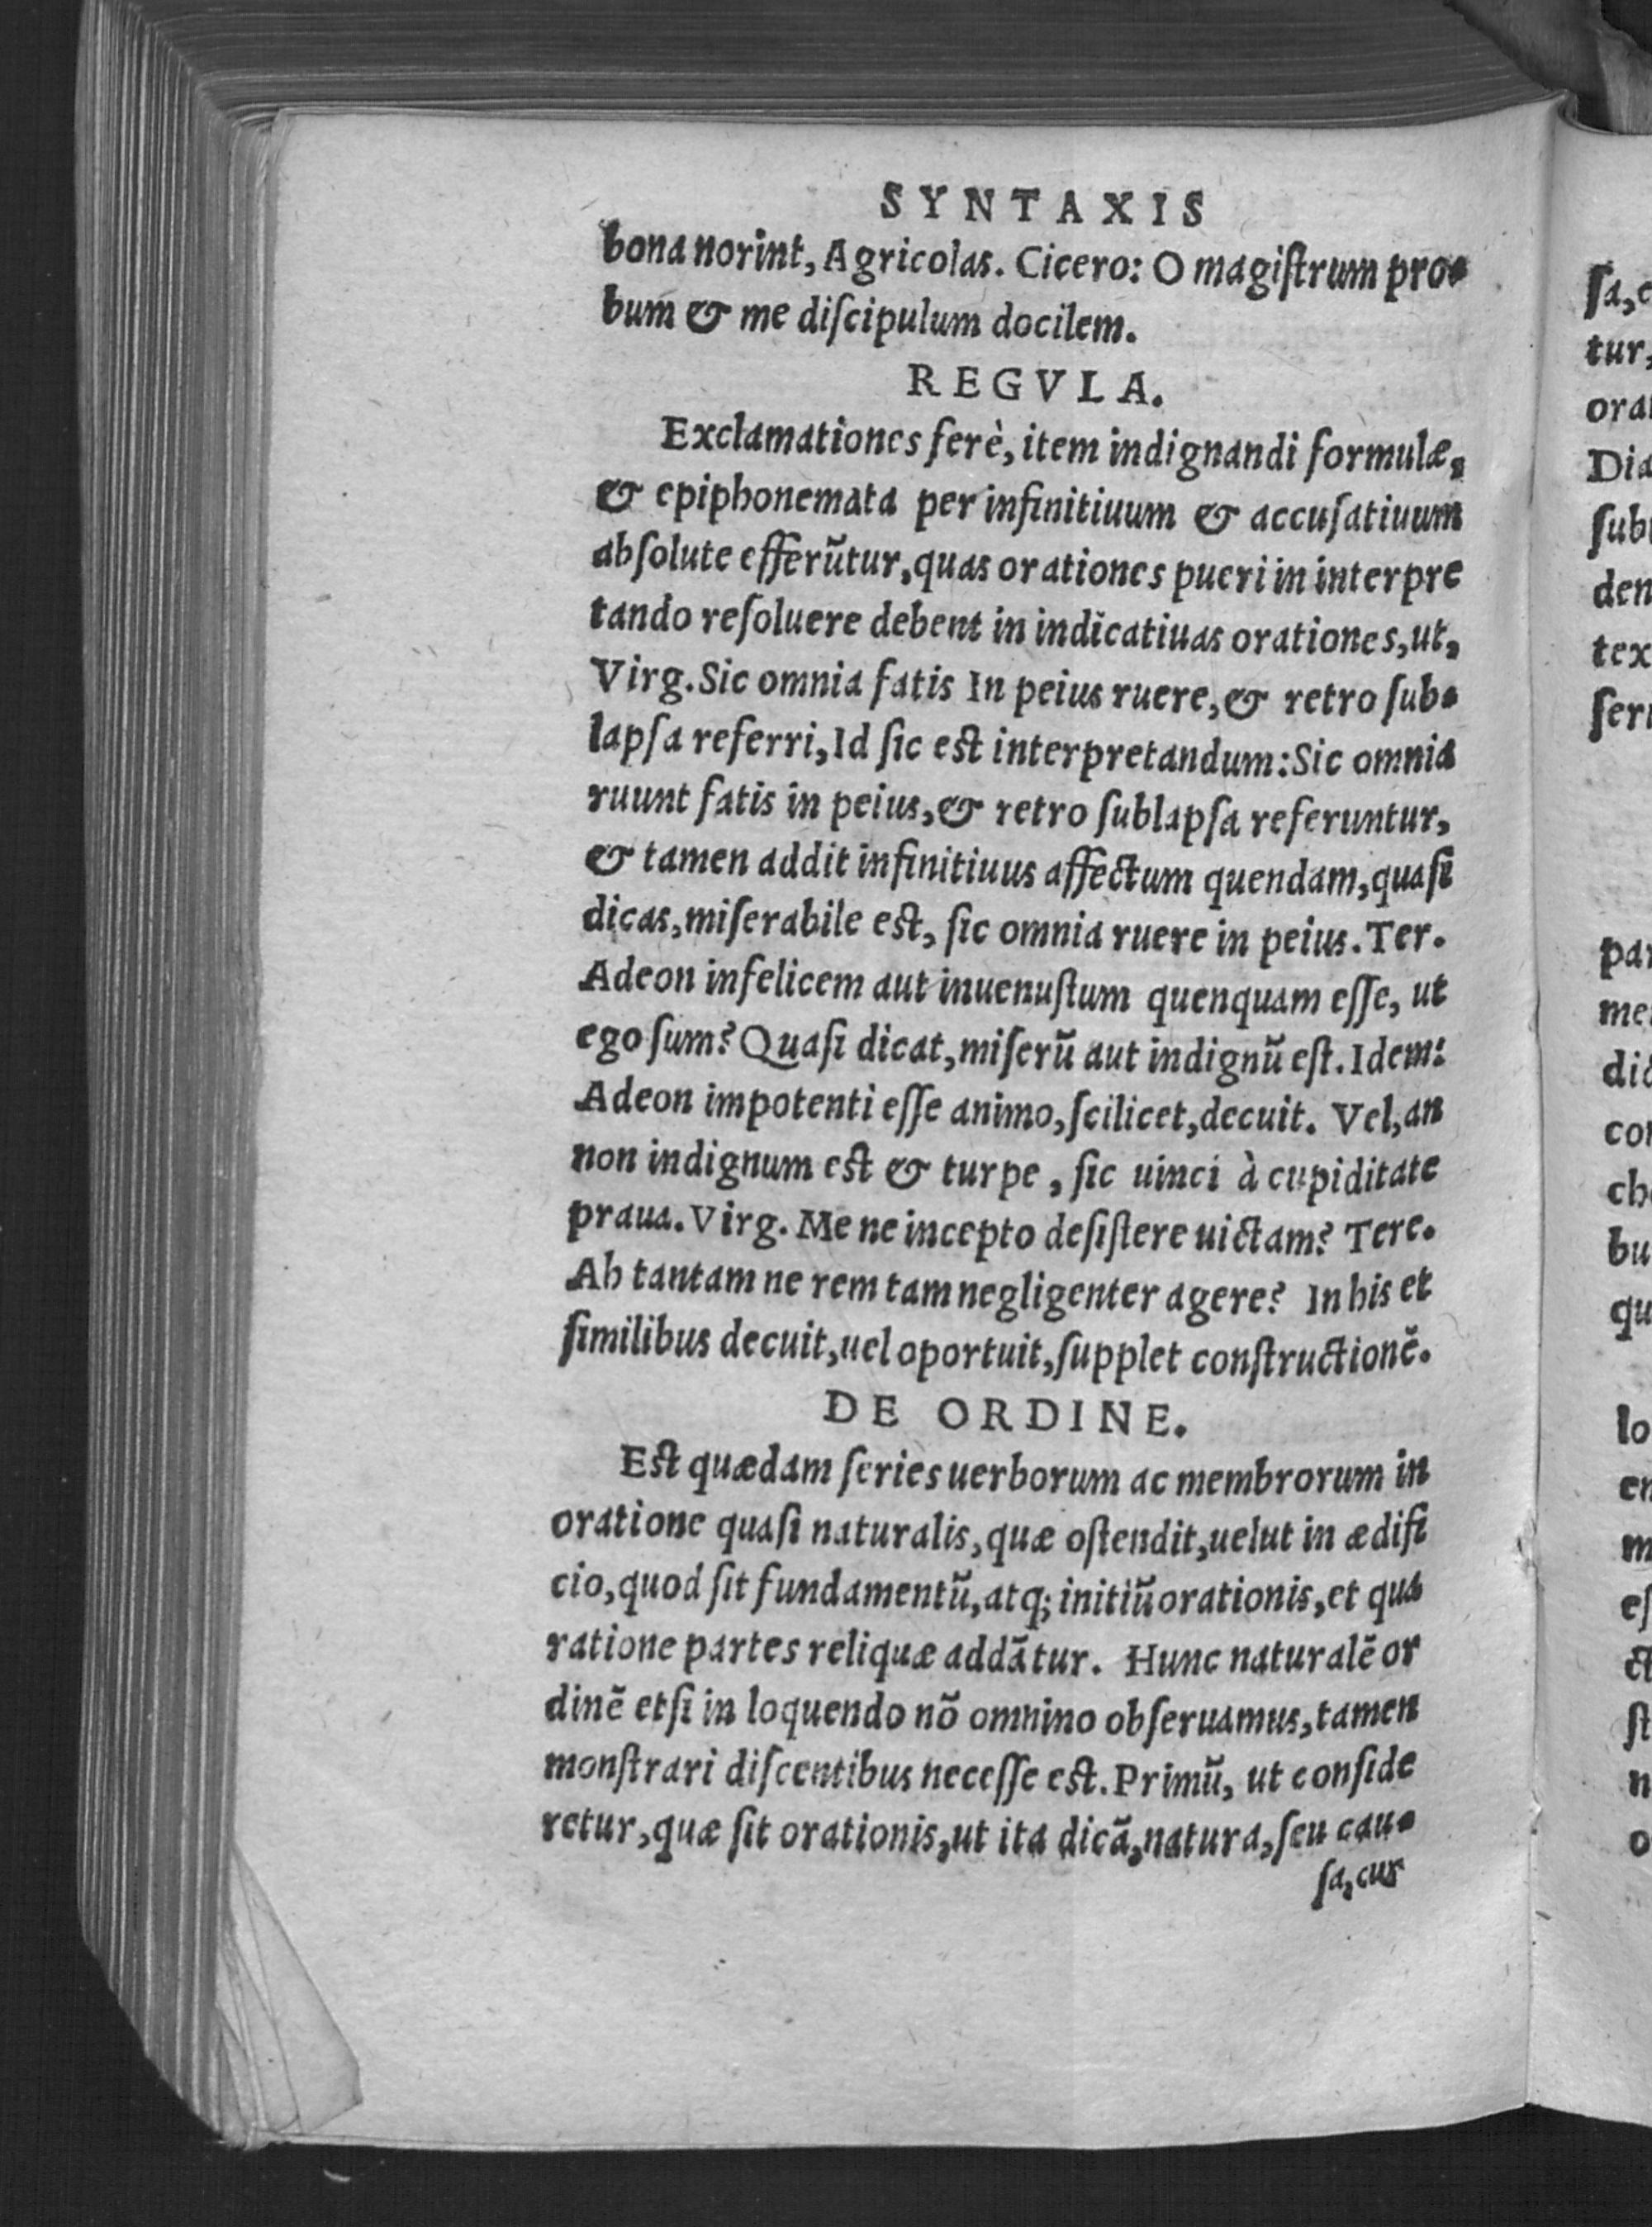 SYNTAXIS
bona norint, Agricolas. Cicero: O magiſtrum pro-
bum & me diſcipulum docilem.
REGVLA.
Exclamationes ferè, item indignandi formulæ,
& epiphonemata per infinitiuum & accuſatiuum
abſolute efferũtur, quas orationes pueri in interpre
tando reſoluere debent in indicatiuas orationes, ut,
Virg. Sic omnia fatis In peius ruere, & retro ſub-
lapſa referri, Id ſic eſt interpretandum: Sic omnia
ruunt fatis in peius, & retro ſublapſa referuntur,
& tamen addit infinitiuus affectum quendam, quaſi
dicas, miſerabile eſt, ſic omnia ruere in peius. Ter.
Adeon infelicem aut inuenuſtum quenquam eſſe, ut
ego ſum? Quaſi dicat, miſerũ aut indignũ eſt. Idem:
Adeon impotenti eſſe animo, ſcilicet, decuit. Vel, an
non indignum eſt & turpe, ſic uinci à cupiditate
praua. Virg. Me ne incepto deſiſtere uictam? Tere.
Ah tantam ne rem tam negligenter agere? In his et
ſimilibus decuit, uel oportuit, ſupplet conſtructionẽ.
DE ORDINE.
Eſt quædam ſeries uerborum ac membrorum in
oratione quaſi naturalis, quæ oſtendit, uelut in ædifi
cio, quod ſit fundamentũ, atq; initiũ orationis, et qua
ratione partes reliquæ addãtur. Hunc naturalẽ or
dinẽ etſi in loquendo nõ omnino obſeruamus, tamen
monſtrari diſcentibus neceſſe eſt. Primũ, ut conſide
retur, quæ ſit orationis, ut ita dicã, natura, ſeu cau-
ſa, cur